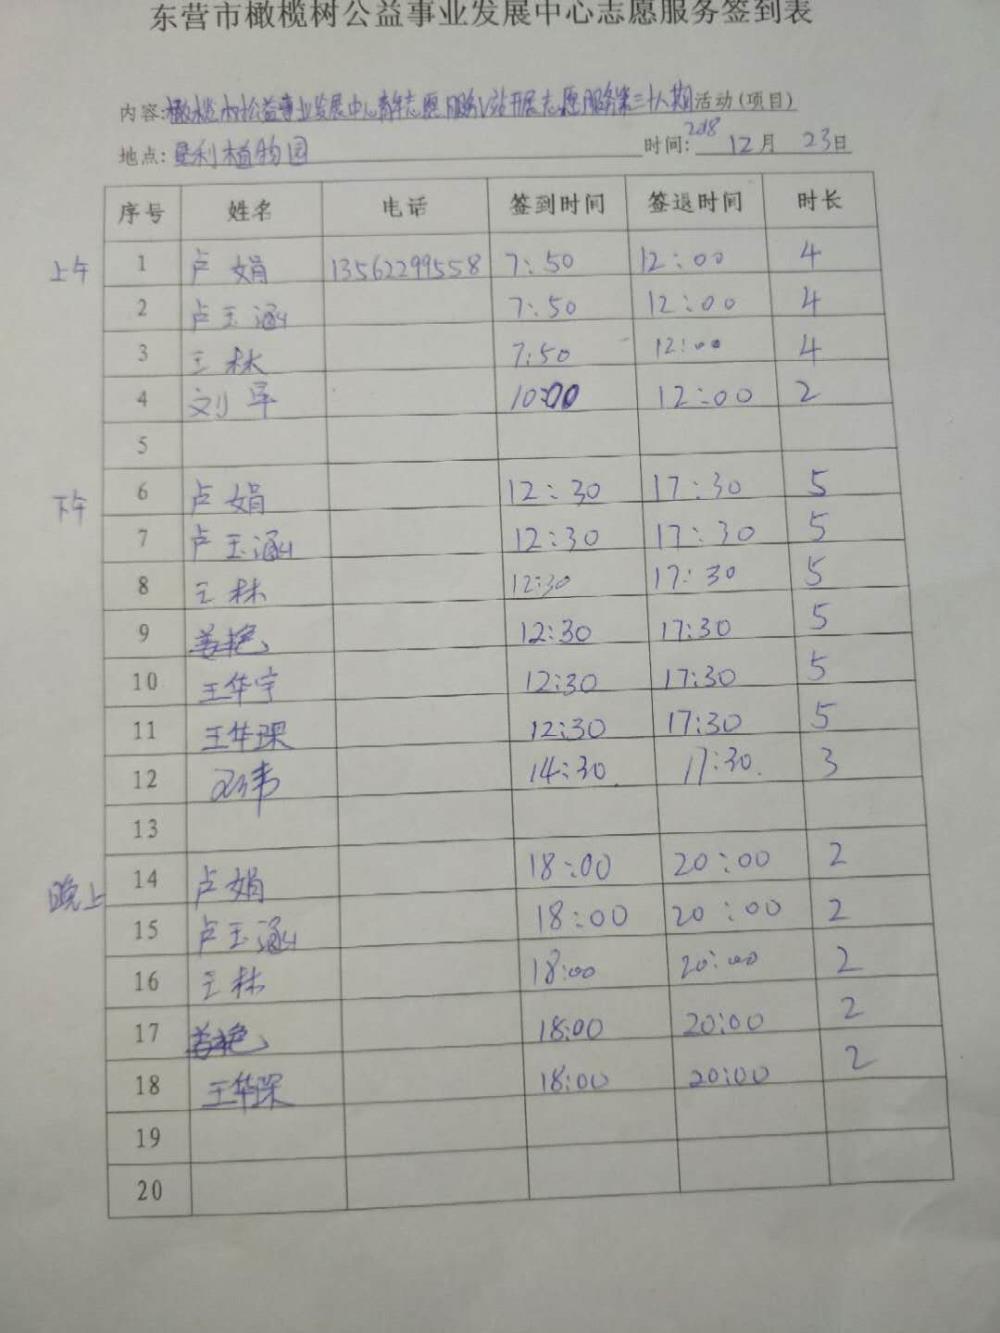 东营市橄榄树公益事业发展中心志愿服务签到表
内容:橄榄树公益事业发展中心青年志愿服务V站开展志愿服务第三十八期活动(项目)
地点:垦利植物园 时间:2018 12月 23日
序号 姓名 电话 签到时间 签退时间 时长
上午 1 卢娟 13562299558 7:50 12:00 4
2 卢玉涵 7:50 12:00 4
3 王林 7:50 12:00 4
4 刘军 10:00 12:00 2
5
下午 6 卢娟 12:30 17:30 5
7 卢玉涵 12:30 17:30 5
8 王林 12:30 17:30 5
9 姜艳 12:30 17:30 5
10 王华宇 12:30 17:30 5
11 王华琛 12:30 17:30 5
12 14:30 17:30 3
13
晚上 14 卢娟 18:00 20:00 2
15 卢玉涵 18:00 20:00 2
16 王林 18:00 20:00 2
17 姜艳 18:00 20:00 2
18 王华琛 18:00 20:00 2
19
20